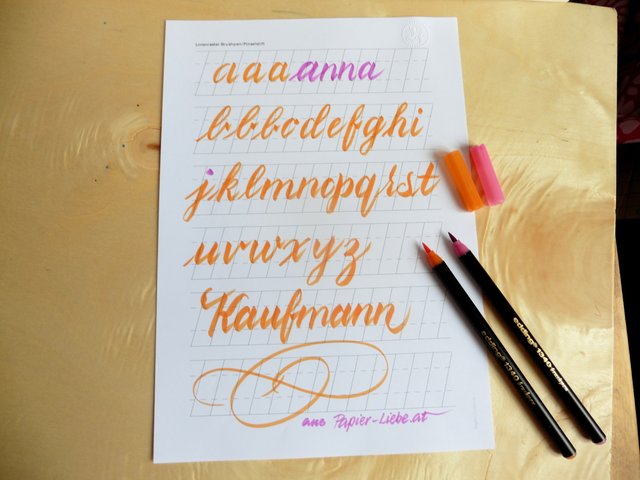 Linienraster Brushpen/Pinselstift
aaaanna
bbbcdefghi
jklmnopqrst
uvwxyz
Kaufmann
aus Papier-Liebe.at
edding 1340
edding 1340